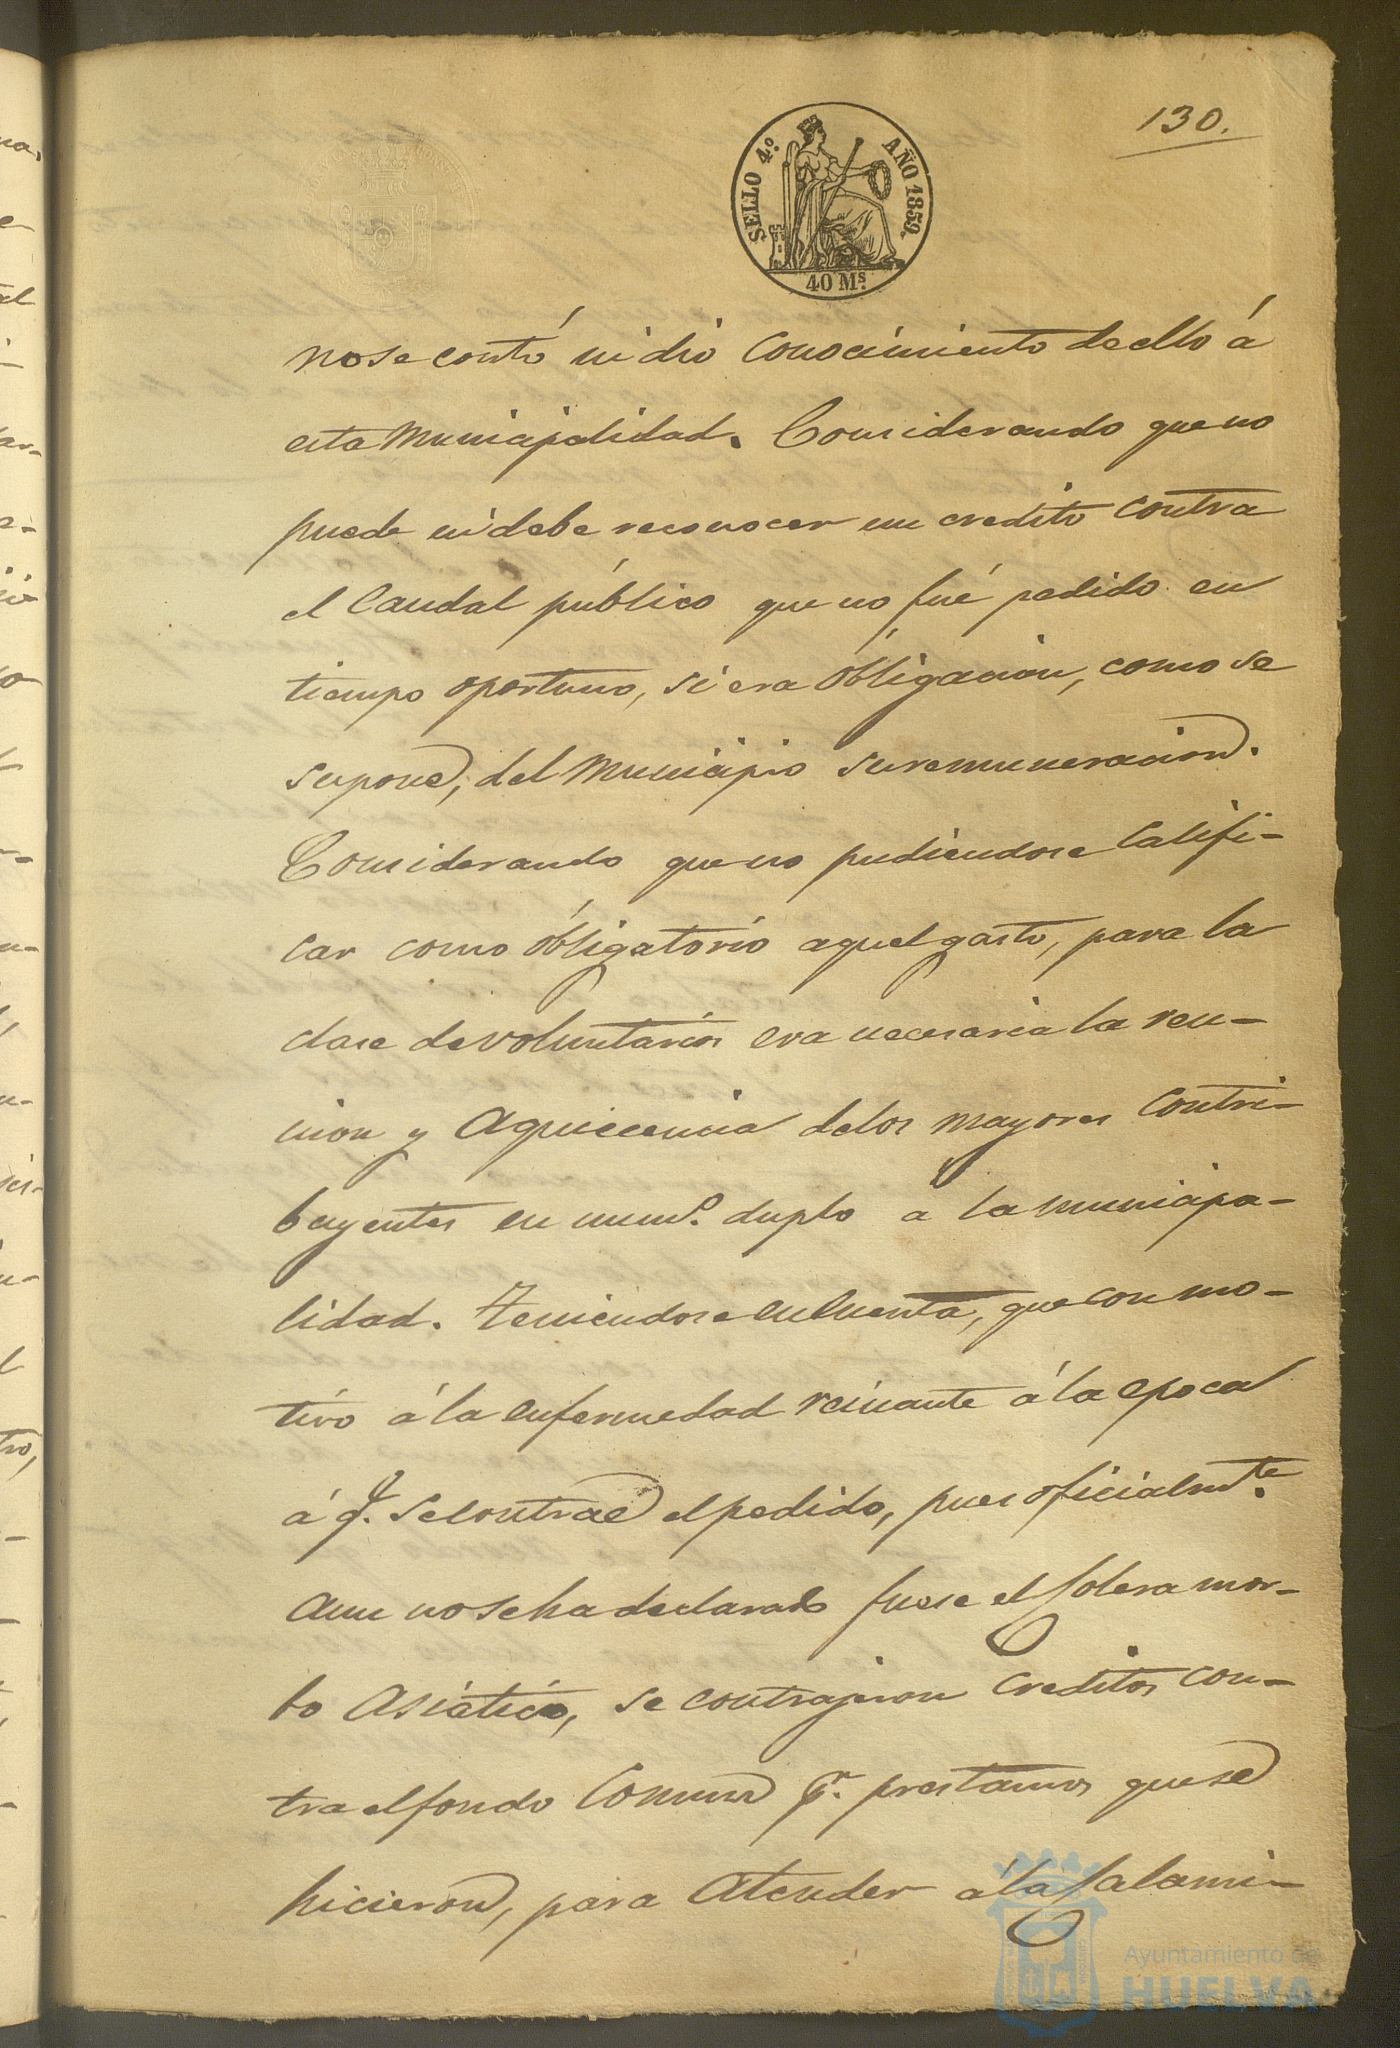 130.
SELLO 4.º AÑO 1859.
40 Ms.
no se contó ni dio conocimiento de ello á
esta Municipalidad. Considerando que no
puede ni debe reconocer un credito contra
el Caudal público que no fué pedido en
tiempo oportuno, si era óbligacion, como se
supone, del Municipio su remuneracion.
Considerando que no pudiendose Califi-
car como óbligatorio aquel gasto, para la
clase de voluntarios era necesaria la reu-
nion y Aquiecencia de los mayores Contri-
buyentes en num.º duplo a la municipa-
lidad. Teniendose en Cuenta, que con mo-
tivo á la enfermedad reinante á la epoca
á q.e se contrae el pedido, pues oficialm.te
aun no se ha declarado fuese el Colera mor-
bo Asiatico, se contrajeron Creditos con-
tra el fondo Comun p.r prestamos que se
hicieron, para Atender á la Calami-
Ayuntamiento de
HUELVA